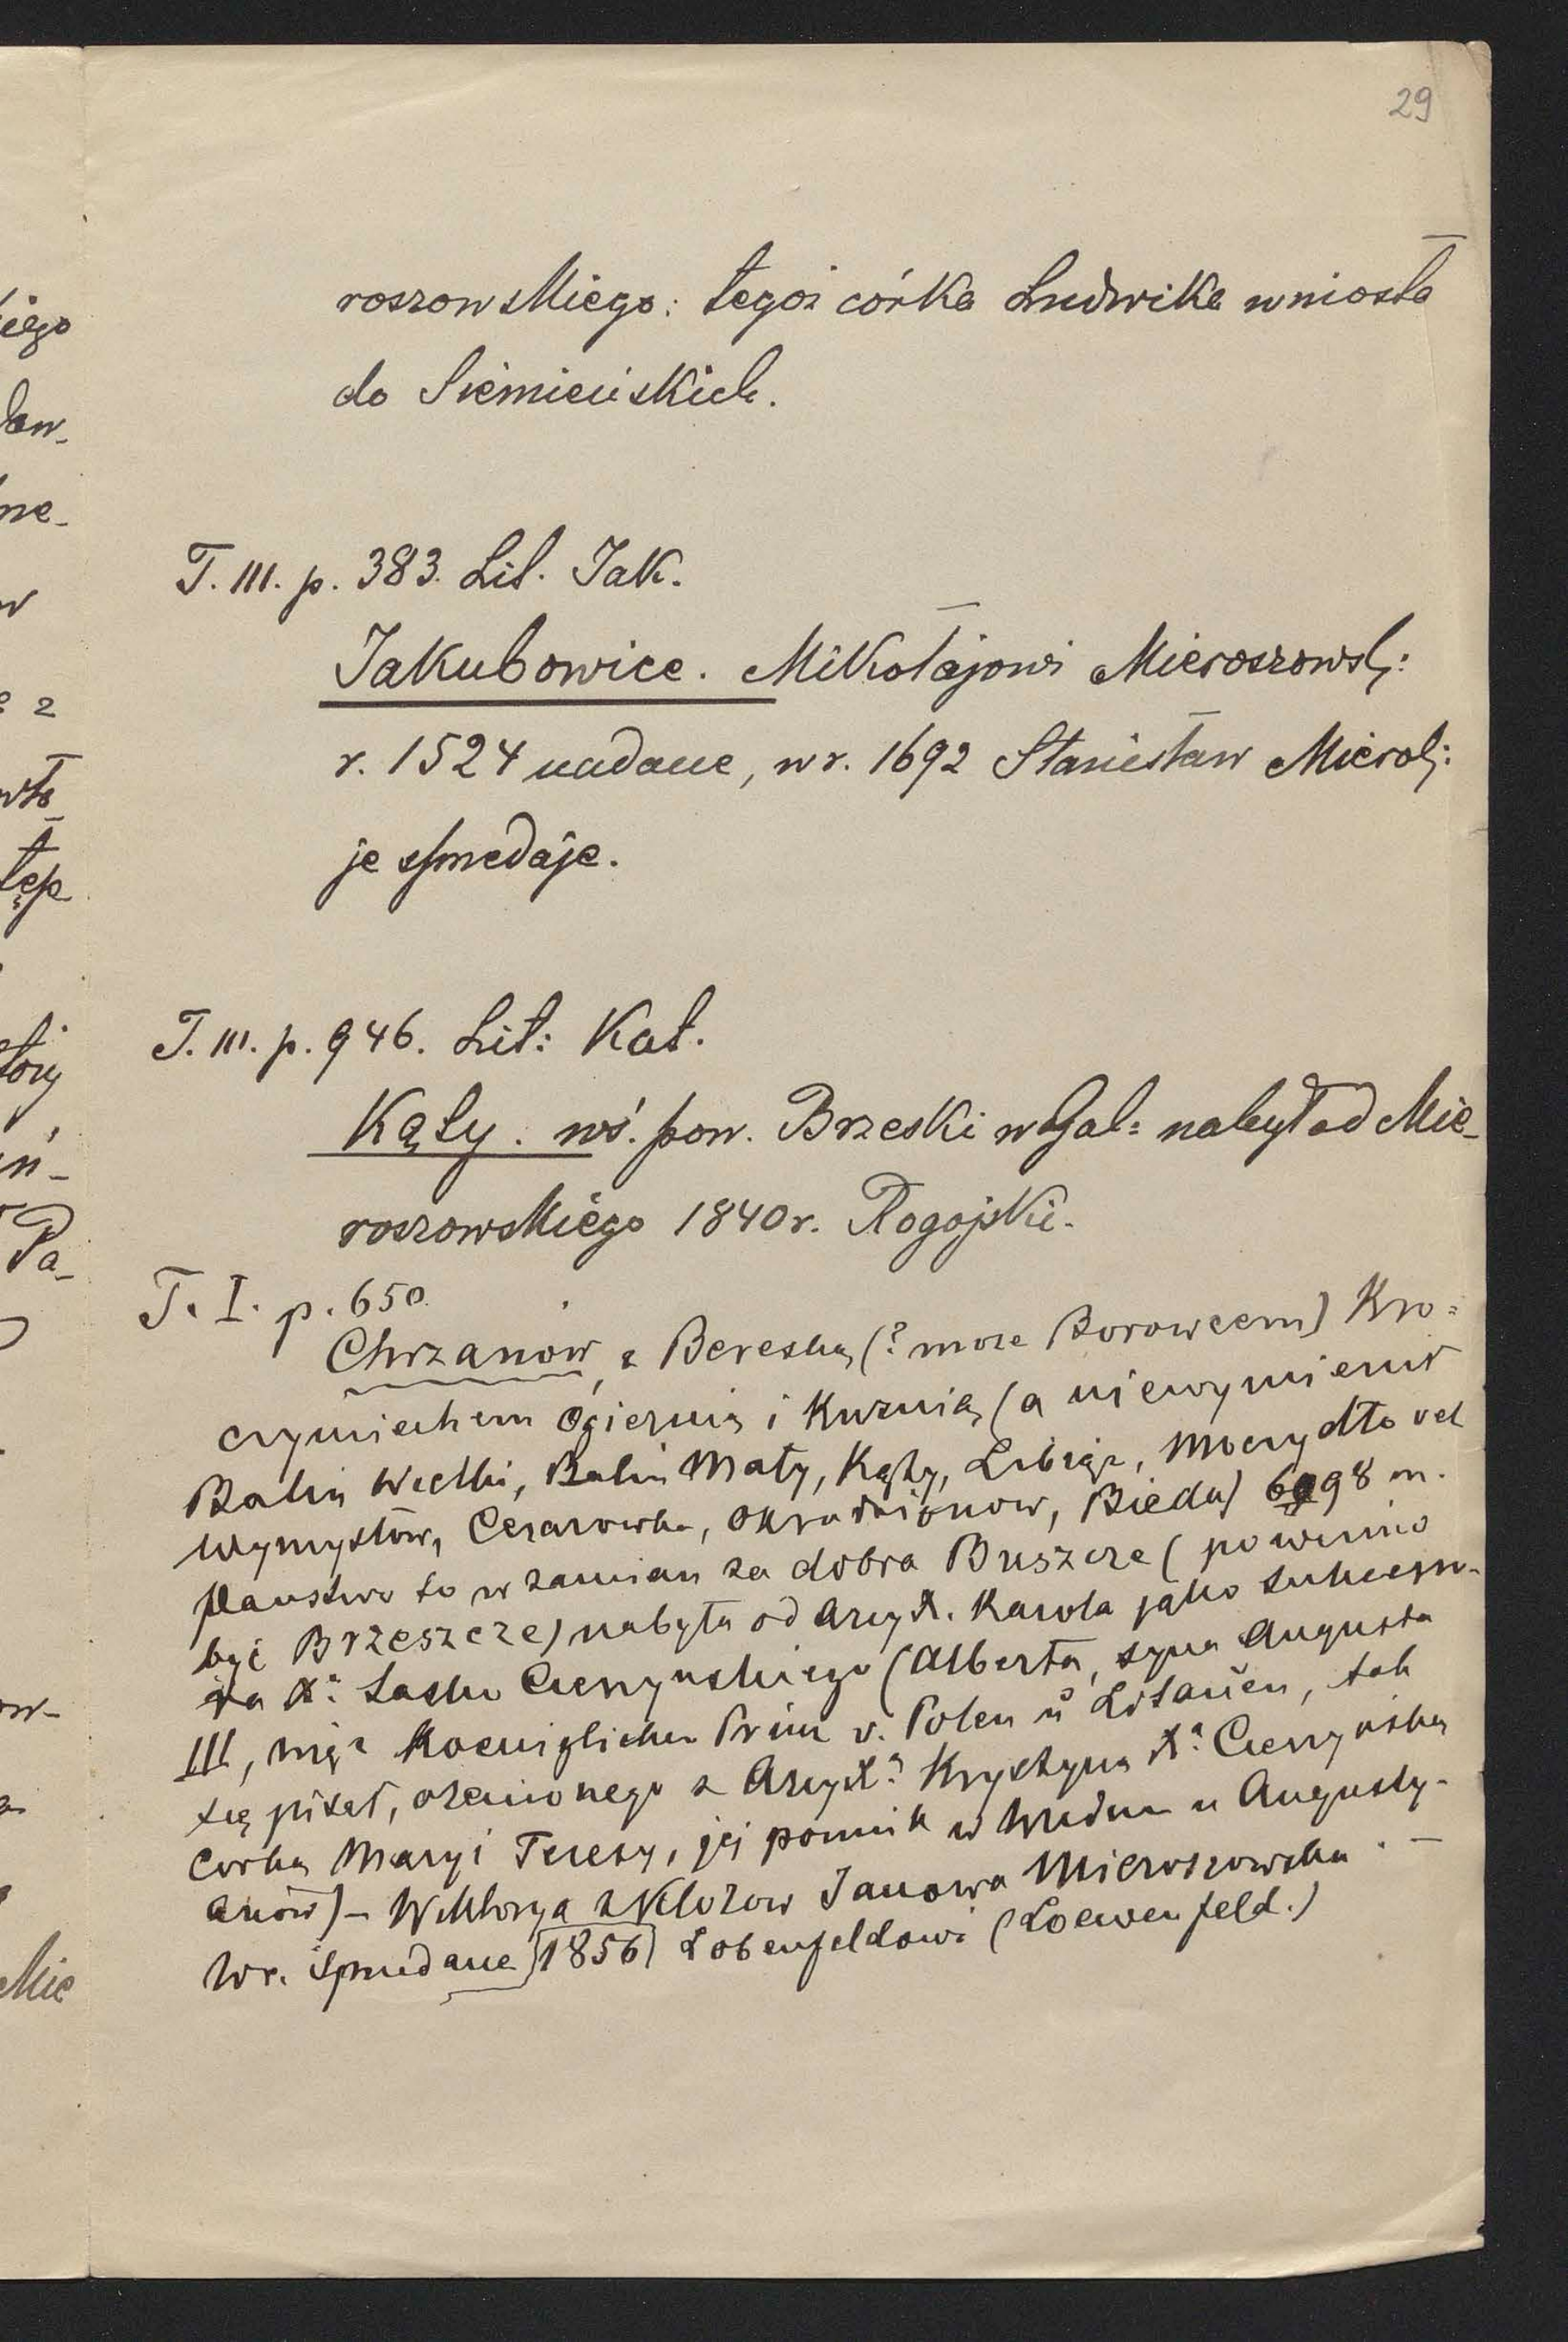 29
roszowskiego: tegoż córka Ludwika wniosła
do Siemieńskich.
T. III. p. 383. Lit. Jak.
Jakubowice. Mikołajowi Mieroszows:
r. 1524 nadane, w r. 1692 Stanisław Mieros:
je sprzedaje.
T. III. p. 946. Lit: Kat.
Kąty. wś. pow. Brzeski w Gal: nabył od Mie-
roszowskiego 1840 r. Rogojski.
T. I. p. 650.
Chrzanów, z Bereską (? może Borowcem) Kro=
czymiechem Ogiernią i Kuźnią (a niewymienił
Balin Wielki, Balin Mały, Kąty, Libiąż, Moczydło vel
Wymysłów, Cezarowka, Okradzionow, Bieda) 6098 m.
Państwo to w zamian za dobra Buszcze (powinno
być Brzeszcze) nabyła od Arcyx. Karola jako sukcesso-
ra X: Sasko Cieszyńskiego (Alberta, syna Augusta
III, mąż Koeniglicher Prinz v. Polen u Litauen, tak
się pisał, ożenionego z Arcyx: Krystyną X: Cieszyńską
Corką Maryi Teresy, jej pomnik w Wiedniu u Augusty-
anów) – Wiktorya z Klozow Janowa Mieroszowska. –
W r. sprzedane [1856] Lobenfeldowi (Loewenfeld.)
iego